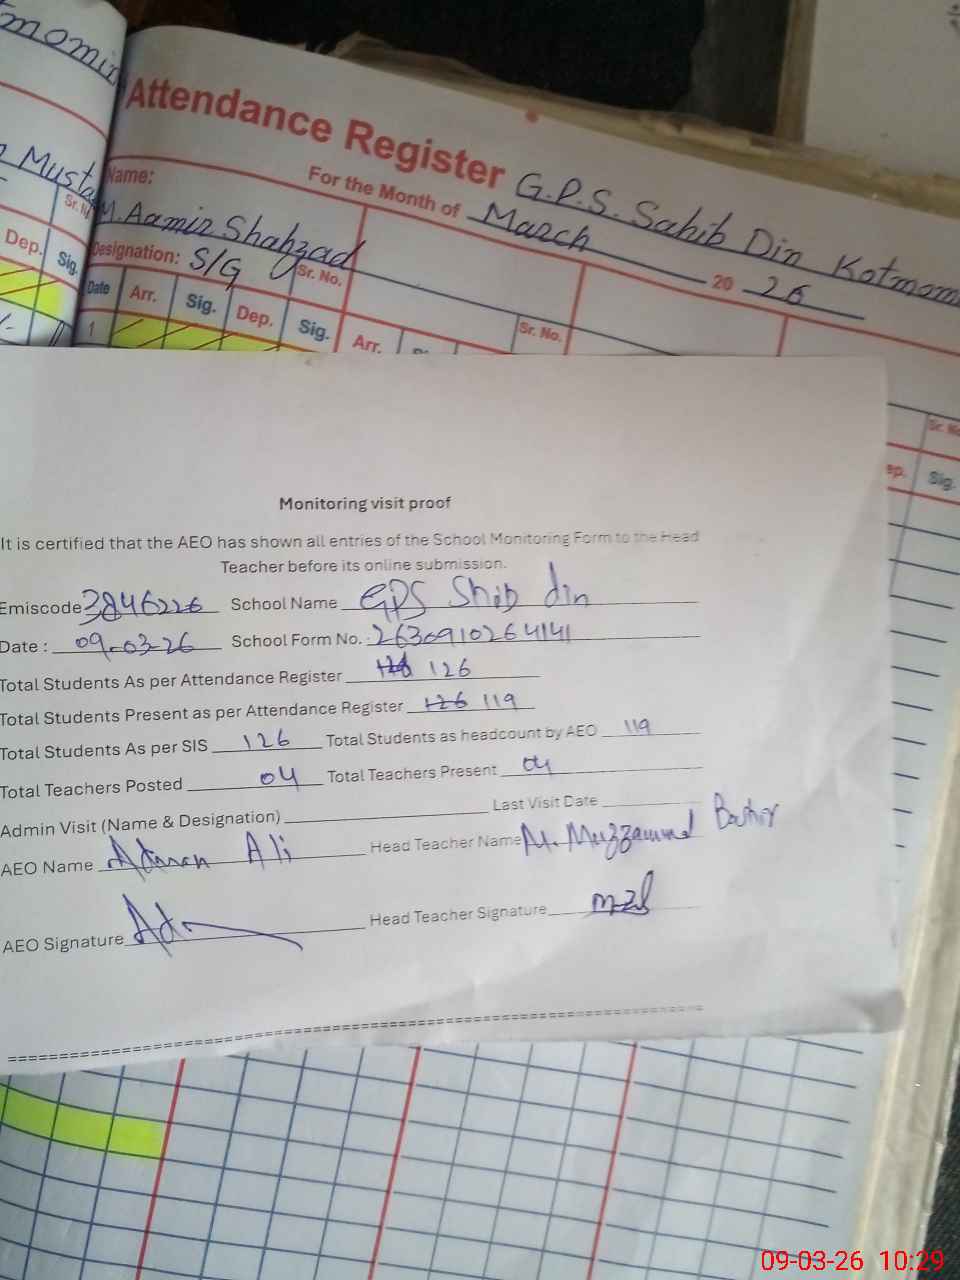 momin
Mustaf
Sr. N
Dep. Sig.
Attendance Register G.P.S. Sahib Din Kotmom
For the Month of March 2026
Name:
M. Aamir Shahzad
Designation: S/G Sr. No. Sr. No. Sr. No
Date Arr. Sig. Dep. Sig. Arr. ep. Sig.
1
Monitoring visit proof
It is certified that the AEO has shown all entries of the School Monitoring Form to the Head
Teacher before its online submission.
Emiscode 3846226 School Name GPS Shib din
Date : 09-03-26 School Form No. 2630910264141
Total Students As per Attendance Register 126
Total Students Present as per Attendance Register 126 119
Total Students As per SIS 126 Total Students as headcount by AEO 119
Total Teachers Posted 04 Total Teachers Present 04
Admin Visit (Name & Designation) Last Visit Date
AEO Name Adnan Ali Head Teacher Name M. Muzzammal Bashir
AEO Signature Head Teacher Signature
09-03-26 10:29